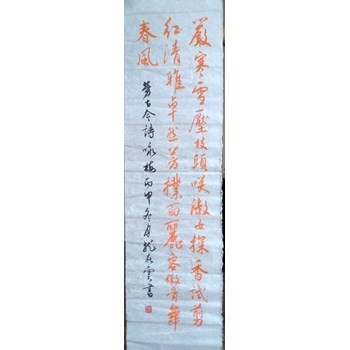 嚴寒雪壓枝頭咲淑女探香試剪
紅清雅卓然芳撲面麗容傲骨舞
春風
古今詩咏梅丙申冬月龍在雲書